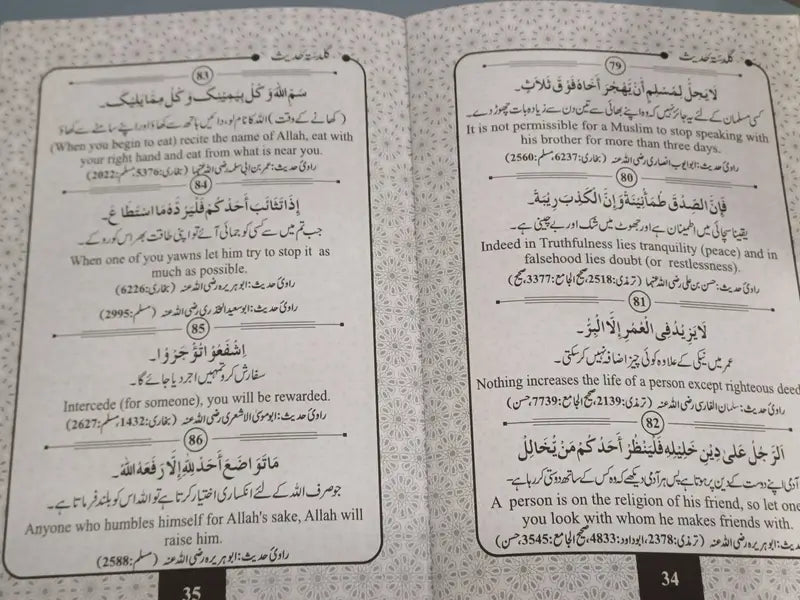 گلدستہ حدیث
79
لَا يَحِلُّ لِمُسْلِمٍ أَنْ يَهْجُرَ أَخَاهُ فَوْقَ ثَلَاثٍ۔
کسی مسلمان کے لئے یہ جائز نہیں کہ وہ اپنے بھائی سے تین دن سے زیادہ بات چھوڑ دے۔
It is not permissible for a Muslim to stop speaking with
his brother for more than three days.
راویٔ حدیث: ابوایوب انصاری رضی اللہ عنہ (بخاری: 6237، مسلم: 2560)
80
فَإِنَّ الصِّدْقَ طُمَأْنِينَةٌ وَإِنَّ الْكَذِبَ رِيبَةٌ۔
یقینا سچائی میں اطمینان ہے اور جھوٹ میں شک اور بے چینی ہے۔
Indeed in Truthfulness lies tranquility (peace) and in
falsehood lies doubt (or restlessness).
راویٔ حدیث: حسن بن علی رضی اللہ عنہما (ترمذی: 2518، صحیح الجامع: 3377، صحیح)
81
لَا يَزِيدُ فِي الْعُمْرِ إِلَّا الْبِرُّ۔
عمر میں نیکی کے علاوہ کوئی چیز اضافہ نہیں کر سکتی۔
Nothing increases the life of a person except righteous deed
راویٔ حدیث: سلمان الفارسی رضی اللہ عنہ (ترمذی: 2139، صحیح الجامع: 7739، حسن)
82
اَلرَّجُلُ عَلٰى دِينِ خَلِيلِهِ فَلْيَنْظُرْ أَحَدُكُمْ مَنْ يُخَالِلُ
آدمی اپنے دوست کے دین پر ہوتا ہے پس ہر آدمی دیکھے کہ وہ کس کے ساتھ دوستی کر رہا ہے۔
A person is on the religion of his friend, so let one
you look with whom he makes friends with.
راویٔ حدیث: ابوہریرہ رضی اللہ عنہ (ترمذی: 2378، ابوداود: 4833، صحیح الجامع: 3545، حسن)
34
گلدستہ حدیث
83
سَمِّ اللهَ وَكُلْ بِيَمِينِكَ وَكُلْ مِمَّا يَلِيكَ۔
(کھانے کے وقت) اللہ کا نام لو، دائیں ہاتھ سے کھاؤ اور اپنے سامنے سے کھاؤ
(When you begin to eat) recite the name of Allah, eat with
your right hand and eat from what is near you.
راویٔ حدیث: عمر بن ابی سلمہ رضی اللہ عنہما (بخاری: 5376، مسلم: 2022)
84
إِذَا تَثَائَبَ أَحَدُكُمْ فَلْيَرُدَّهُ مَا اسْتَطَاعَ۔
جب تم میں سے کسی کو جمائی آئے تو اپنی طاقت بھر اس کو روکے۔
When one of you yawns let him try to stop it as
much as possible.
راویٔ حدیث: ابوہریرہ رضی اللہ عنہ (بخاری: 6226)
راویٔ حدیث: ابوسعید الخدری رضی اللہ عنہ (مسلم: 2995)
85
اِشْفَعُوْا تُؤْجَرُوْا۔
سفارش کرو تمہیں اجر دیا جائے گا۔
Intercede (for someone), you will be rewarded.
راویٔ حدیث: ابوموسیٰ الاشعری رضی اللہ عنہ (بخاری: 1432، مسلم: 2627)
86
مَا تَوَاضَعَ أَحَدٌ لِلّٰهِ إِلَّا رَفَعَهُ اللهُ۔
جو صرف اللہ کے لئے انکساری اختیار کرتا ہے تو اللہ اس کو بلند فرماتا ہے۔
Anyone who humbles himself for Allah's sake, Allah will
raise him.
راویٔ حدیث: ابوہریرہ رضی اللہ عنہ (مسلم: 2588)
35